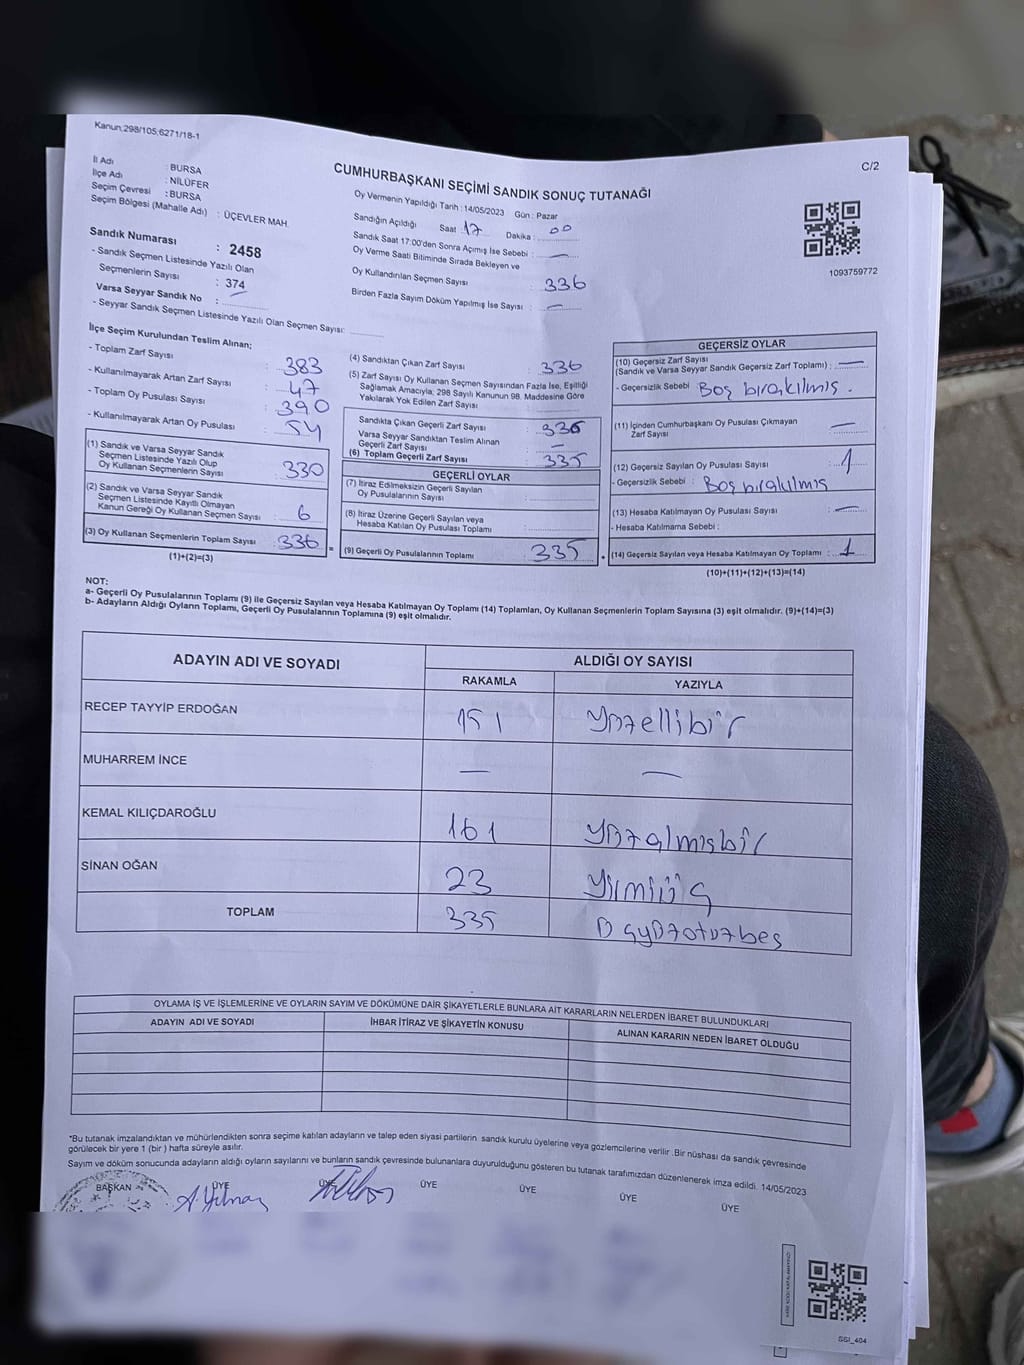 Kanun;298/105;6271/18-1
C/2
CUMHURBAŞKANI SEÇİMİ SANDIK SONUÇ TUTANAĞI
İl Adı : BURSA
İlçe Adı : NİLÜFER
Seçim Çevresi : BURSA
Seçim Bölgesi (Mahalle Adı) : ÜÇEVLER MAH.
Sandık Numarası : 2458
- Sandık Seçmen Listesinde Yazılı Olan
Seçmenlerin Sayısı : 374
Varsa Seyyar Sandık No : —
- Seyyar Sandık Seçmen Listesinde Yazılı Olan Seçmen Sayısı:
Oy Vermenin Yapıldığı Tarih : 14/05/2023 Gün : Pazar
Sandığın Açıldığı Saat : 17 Dakika : 00
Sandık Saat 17:00'den Sonra Açımış İse Sebebi : —
Oy Verme Saati Bitiminde Sırada Bekleyen ve
Oy Kullandırılan Seçmen Sayısı : 336
Birden Fazla Sayım Döküm Yapılmış İse Sayısı : —
1093759772
İlçe Seçim Kurulundan Teslim Alınan;
- Toplam Zarf Sayısı : 383
- Kullanılmayarak Artan Zarf Sayısı : 47
- Toplam Oy Pusulası Sayısı : 390
- Kullanılmayarak Artan Oy Pusulası : 54
(1) Sandık ve Varsa Seyyar Sandık
Seçmen Listesinde Yazılı Olup
Oy Kullanan Seçmenlerin Sayısı : 330
(2) Sandık ve Varsa Seyyar Sandık
Seçmen Listesinde Kayıtlı Olmayan
Kanun Gereği Oy Kullanan Seçmen Sayısı : 6
(3) Oy Kullanan Seçmenlerin Toplam Sayısı : 336
(1)+(2)=(3)
(4) Sandıktan Çıkan Zarf Sayısı : 336
(5) Zarf Sayısı Oy Kullanan Seçmen Sayısından Fazla İse, Eşitliği
Sağlamak Amacıyla; 298 Sayılı Kanunun 98. Maddesine Göre
Yakılarak Yok Edilen Zarf Sayısı :
Sandıkta Çıkan Geçerli Zarf Sayısı : 336
Varsa Seyyar Sandıktan Teslim Alınan
Geçerli Zarf Sayısı : —
(6) Toplam Geçerli Zarf Sayısı : 335
GEÇERLİ OYLAR
(7) İtiraz Edilmeksizin Geçerli Sayılan
Oy Pusulalarının Sayısı :
(8) İtiraz Üzerine Geçerli Sayılan veya
Hesaba Katılan Oy Pusulası Toplamı :
= (9) Geçerli Oy Pusulalarının Toplamı : 335
GEÇERSİZ OYLAR
(10) Geçersiz Zarf Sayısı
(Sandık ve Varsa Seyyar Sandık Geçersiz Zarf Toplamı) : —
- Geçersizlik Sebebi : Boş bırakılmış .
(11) İçinden Cumhurbaşkanı Oy Pusulası Çıkmayan
Zarf Sayısı : —
(12) Geçersiz Sayılan Oy Pusulası Sayısı : 1
- Geçersizlik Sebebi : Boş bırakılmış
(13) Hesaba Katılmayan Oy Pusulası Sayısı : —
- Hesaba Katılmama Sebebi :
(14) Geçersiz Sayılan veya Hesaba Katılmayan Oy Toplamı : 1
(10)+(11)+(12)+(13)=(14)
NOT:
a- Geçerli Oy Pusulalarının Toplamı (9) ile Geçersiz Sayılan veya Hesaba Katılmayan Oy Toplamı (14) Toplamları, Oy Kullanan Seçmenlerin Toplam Sayısına (3) eşit olmalıdır. (9)+(14)=(3)
b- Adayların Aldığı Oyların Toplamı, Geçerli Oy Pusulalarının Toplamına (9) eşit olmalıdır.
ADAYIN ADI VE SOYADI ALDIĞI OY SAYISI
RAKAMLA YAZIYLA
RECEP TAYYİP ERDOĞAN 151 Yüzellibir
MUHARREM İNCE — —
KEMAL KILIÇDAROĞLU 161 Yüzalmışbir
SİNAN OĞAN 23 Yirmiüç
TOPLAM 335 Üçyüzotuzbeş
OYLAMA İŞ VE İŞLEMLERİNE VE OYLARIN SAYIM VE DÖKÜMÜNE DAİR ŞİKAYETLERLE BUNLARA AİT KARARLARIN NELERDEN İBARET BULUNDUKLARI
ADAYIN ADI VE SOYADI İHBAR İTİRAZ VE ŞİKAYETİN KONUSU ALINAN KARARIN NEDEN İBARET OLDUĞU
*Bu tutanak imzalandıktan ve mühürlendikten sonra seçime katılan adayların ve talep eden siyasi partilerin sandık kurulu üyelerine veya gözlemcilerine verilir .Bir nüshası da sandık çevresinde
görülecek bir yere 1 (bir ) hafta süreyle asılır.
Sayım ve döküm sonucunda adayların aldığı oyların sayılarını ve bunların sandık çevresinde bulunanlara duyurulduğunu gösteren bu tutanak tarafımızdan düzenlenerek imza edildi. 14/05/2023
BAŞKAN ÜYE ÜYE ÜYE ÜYE ÜYE ÜYE
A.Yılmaz
SSI_404